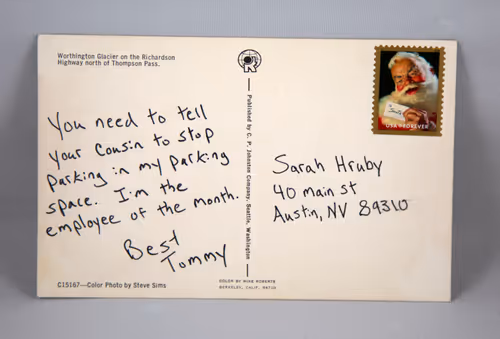 Worthington Glacier on the Richardson
Highway north of Thompson Pass.
You need to tell
your cousin to stop
parking in my parking
space. I'm the
employee of the month.
Best
Tommy
C15167—Color Photo by Steve Sims
Published by C. P. Johnston Company, Seattle, Washington
COLOR BY MIKE ROBERTS
BERKELEY, CALIF. 94710
USA FOREVER
Sarah Hruby
40 main st
Austin, NV 89310